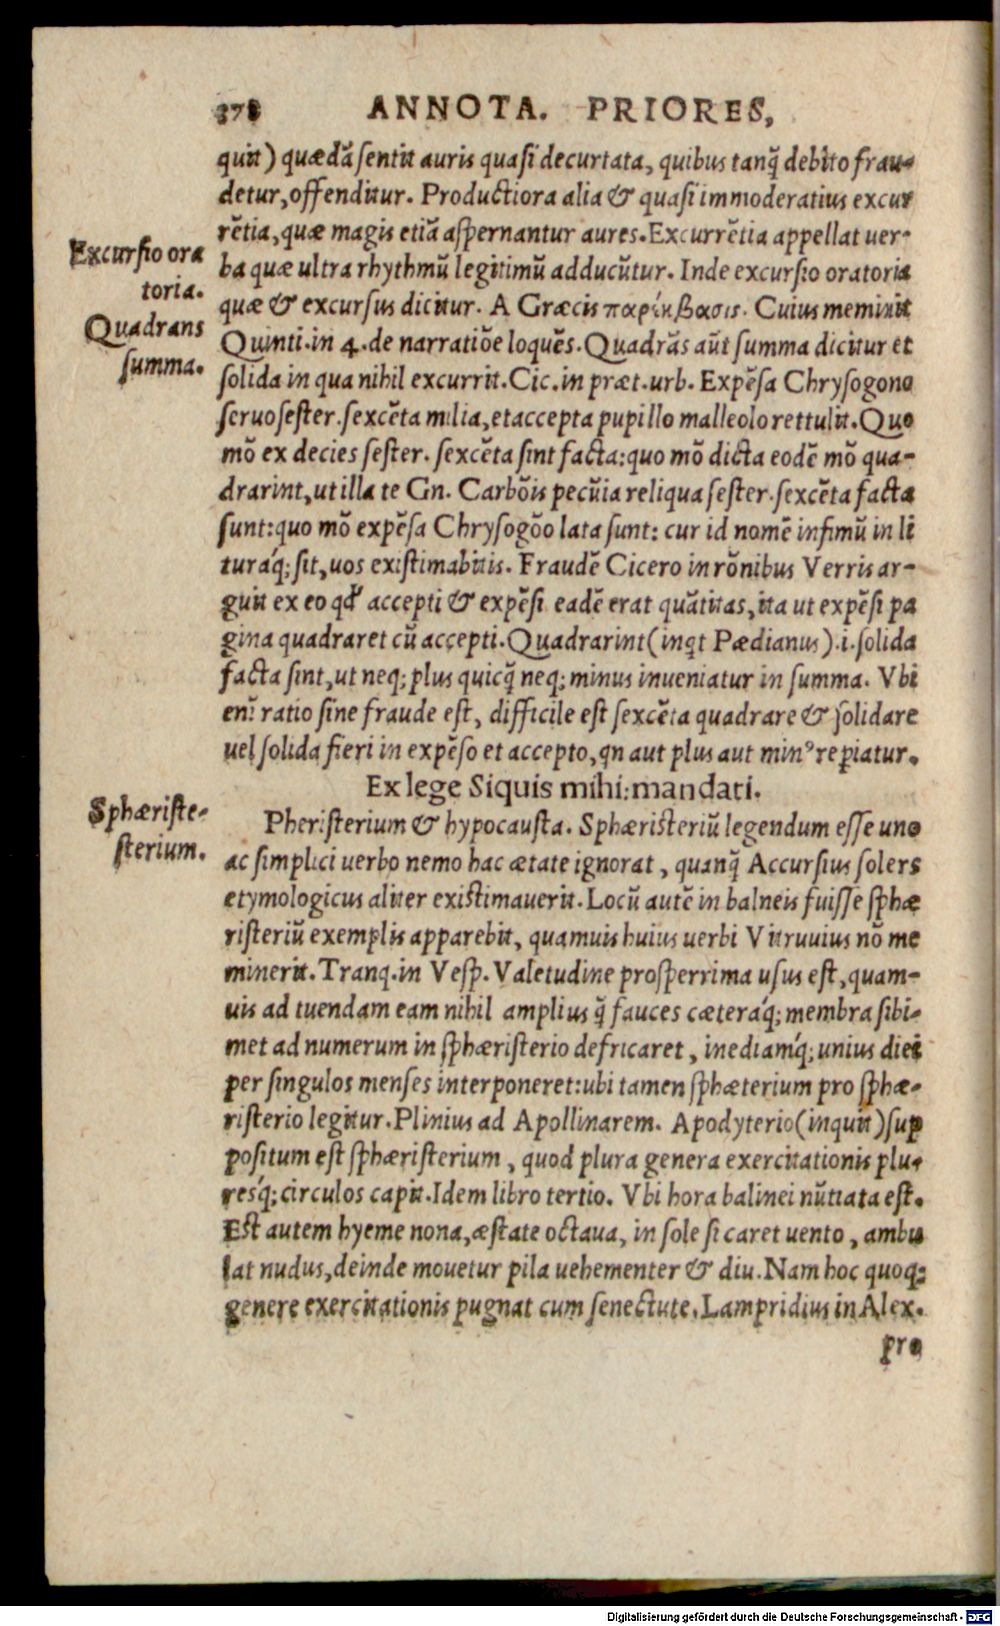 378 ANNOTA. PRIORES,
quit) quædā sentit auris quasi decurtata, quibus tanq̃ debito frau-
detur, offenditur. Productiora alia & quasi immoderatius excur
rētia, quæ magis etiā aspernantur aures. Excurrētia appellat uer-
Excursio ora
ba quæ ultra rhythmū legitimū adducūtur. Inde excursio oratoria
toria.
quæ & excursus dicitur. A Græcis παρέκβασις. Cuius meminit
Quadrans
Quinti. in 4. de narratiōe loquēs. Quadrās aūt summa dicitur et
summa.
solida in qua nihil excurrit. Cic. in præt. urb. Expēsa Chrysogono
seruo sester. sexcēta milia, et accepta pupillo malleolo rettulit. Quo
mō ex decies sester. sexcēta sint facta: quo mō dicta eodē mō qua-
drarint, ut illa te Gn. Carbōis pecūia reliqua sester. sexcēta facta
sunt: quo mō expēsa Chrysogōo lata sunt: cur id nomē infimū in li
turáq; sit, uos existimabitis. Fraudē Cicero in rōnibus Verris ar-
guit ex eo qđ accepti & expēsi eadē erat quātitas, ita ut expēsi pa
gina quadraret cū accepti. Quadrarint (inq̇t Pædianus) .i. solida
facta sint, ut neq; plus quicq̃ neq; minus inueniatur in summa. Vbi
eni ratio sine fraude est, difficile est sexcēta quadrare & solidare
uel solida fieri in expēso et accepto, qn aut plus aut minꝰ reꝑiatur.
Ex lege Siquis mihi: mandati.
Sphæriste-
sterium.
Pheristerium & hypocausta. Sphæristeriū legendum esse uno
ac simplici uerbo nemo hac ætate ignorat, quanq̃ Accursius solers
etymologicus aliter existimauerit. Locū autē in balneis fuisse sphæ
risteriū exemplis apparebit, quamuis huius uerbi Vitruuius nō me
minerit. Tranq. in Vesp. Valetudine prosperrima usus est, quam-
uis ad tuendam eam nihil amplius q̃ fauces cæteráq; membra sibi-
met ad numerum in sphæristerio defricaret, inediamq́; unius diei
per singulos menses interponeret: ubi tamen sphæterium pro sphæ-
risterio legitur. Plinius ad Apollinarem. Apodyterio (inquit) sup
positum est sphæristerium, quod plura genera exercitationis plu-
resq́; circulos capit. Idem libro tertio. Vbi hora balinei nūtiata est.
Est autem hyeme nona, æstate octaua, in sole si caret uento, ambu
lat nudus, deinde mouetur pila uehementer & diu. Nam hoc quoq;
genere exercitationis pugnat cum senectute. Lampridius in Alex.
pro
Digitalisierung gefördert durch die Deutsche Forschungsgemeinschaft - DFG